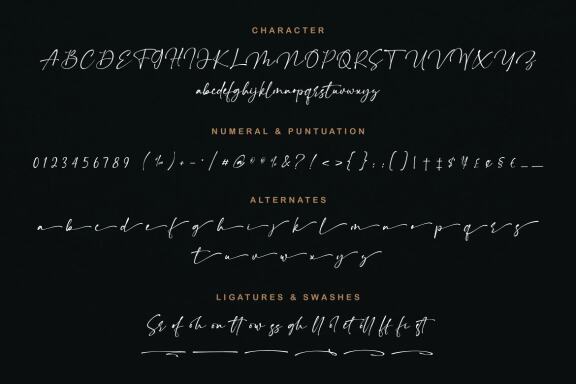 CHARACTER
ABCDEFGHIJKLMNOPQRSTUVWXYZ
abcdefghijklmnopqrstuvwxyz
NUMERAL & PUNTUATION
0123456789 (%)+-·/#@
&?!<>{}:;()|†‡$¥£¢§€__
ALTERNATES
a b c d e f g h i j k l m n o p q r s
t u v w x y z
LIGATURES & SWASHES
Sr of oh on tt ow ss gh ll ol et oll ff fi st